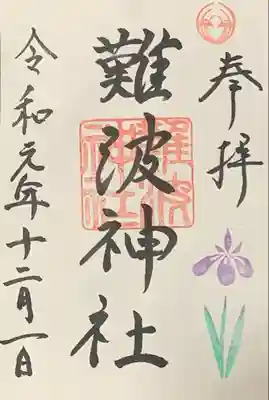 奉拝
難波神社
令和元年十二月一日
難波
神社